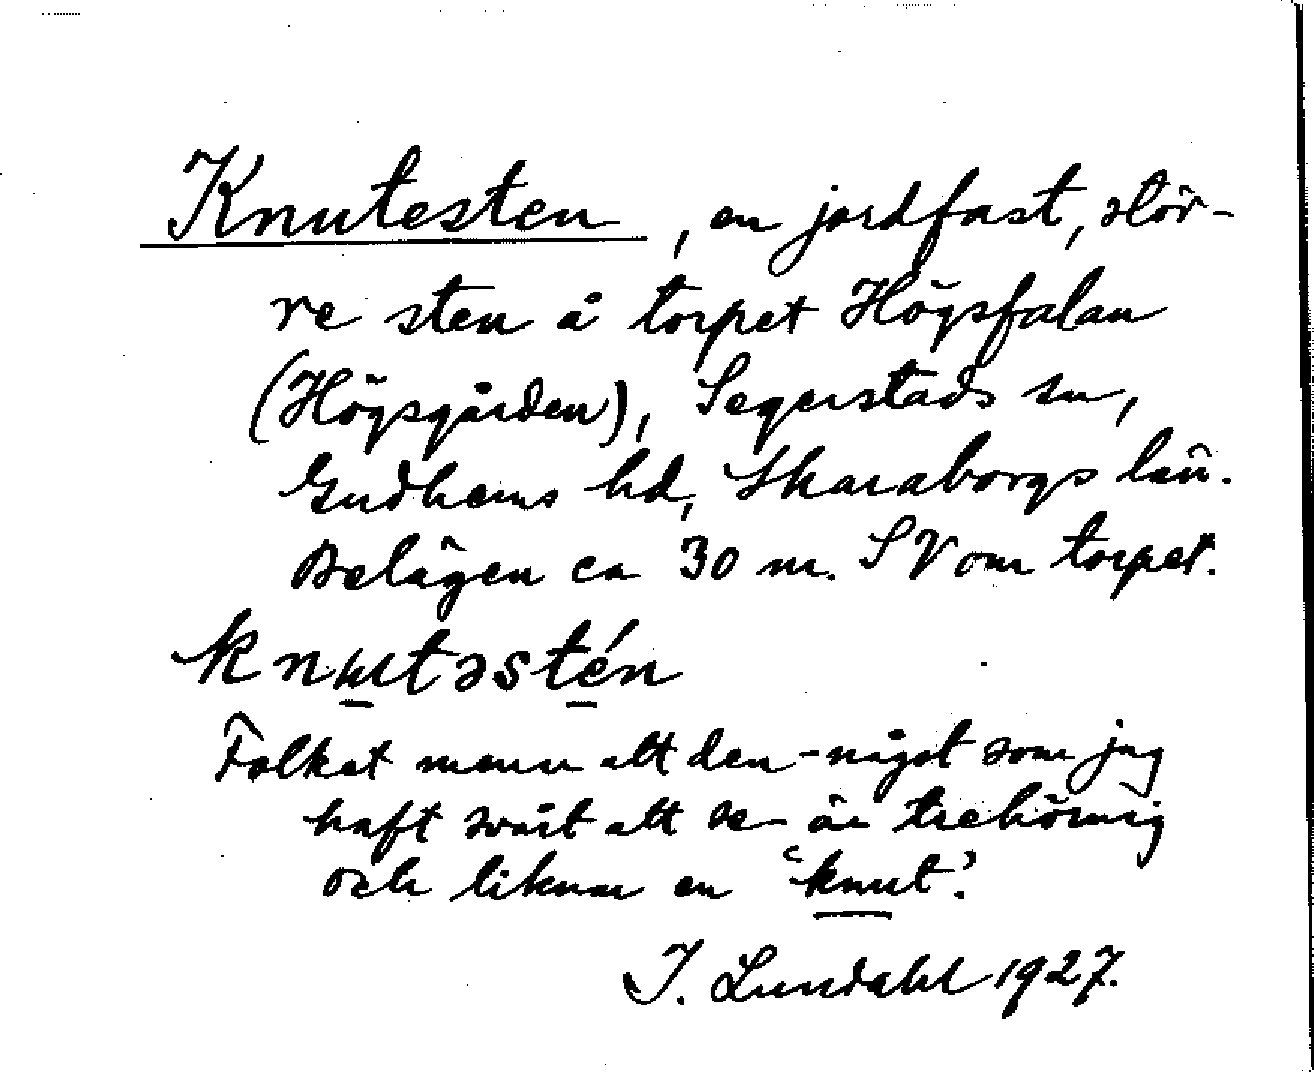 Knutesten, en jordfast, stör-
re sten å torpet Högsfalan
(Högsgården), Segerstads sn,
Gudhems hd, Skaraborgs län.
Belägen ca 30 m. SV om torpet.
knutəstén
Folket menar att den - något som jag
haft svårt att se - är trehörnig
och liknar en 'knut'.
I. Lundahl 1927.